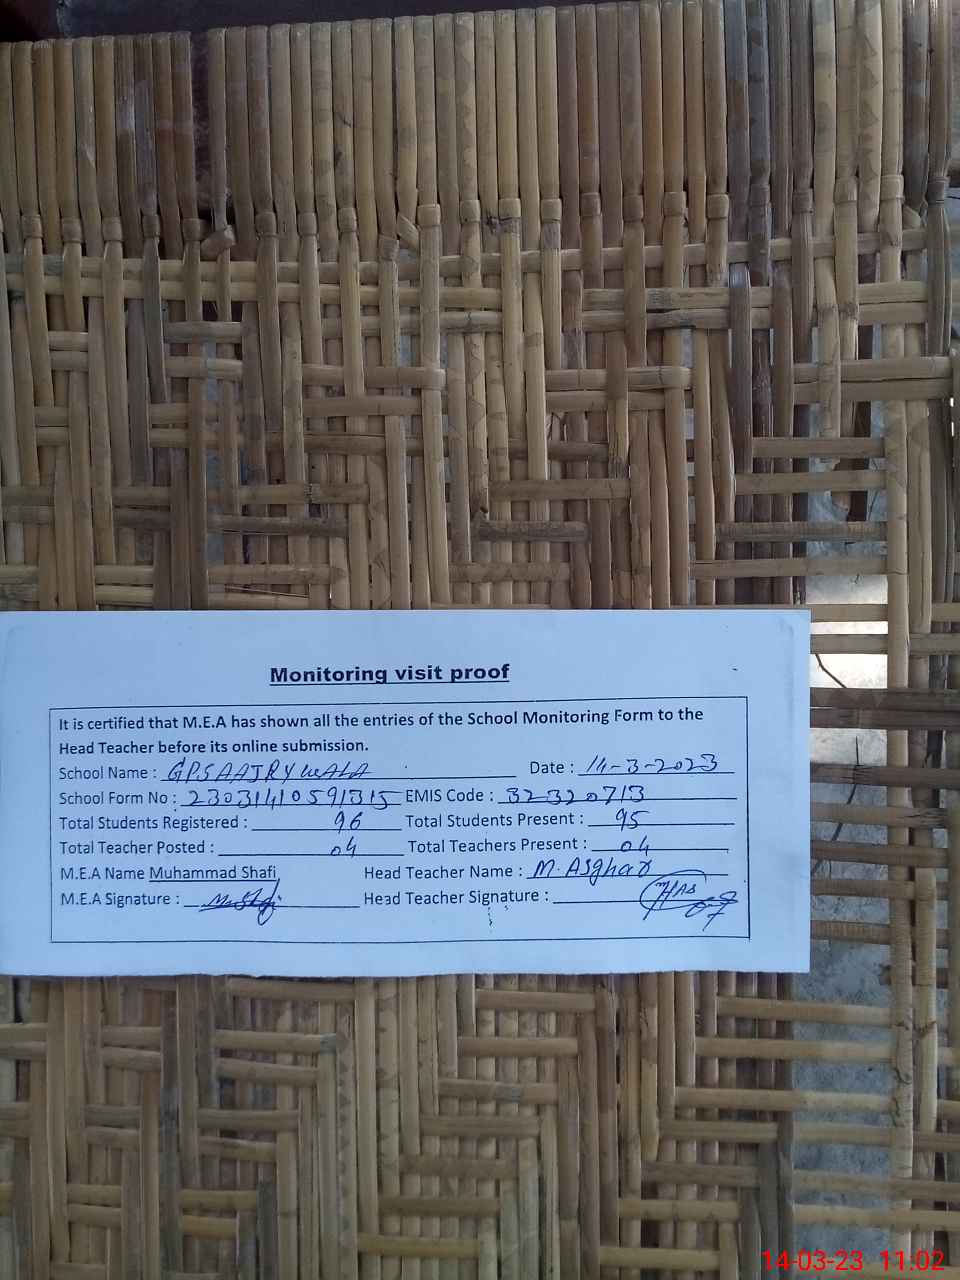 Monitoring visit proof
It is certified that M.E.A has shown all the entries of the School Monitoring Form to the
Head Teacher before its online submission.
School Name : GPS AAJRY WALA Date : 14-3-2023
School Form No : 23031410591315 EMIS Code : 32320713
Total Students Registered : 96 Total Students Present : 95
Total Teacher Posted : 04 Total Teachers Present : 04
M.E.A Name Muhammad Shafi Head Teacher Name : M. Asghar
M.E.A Signature : M. Shafi Head Teacher Signature :
14-03-23 11:02